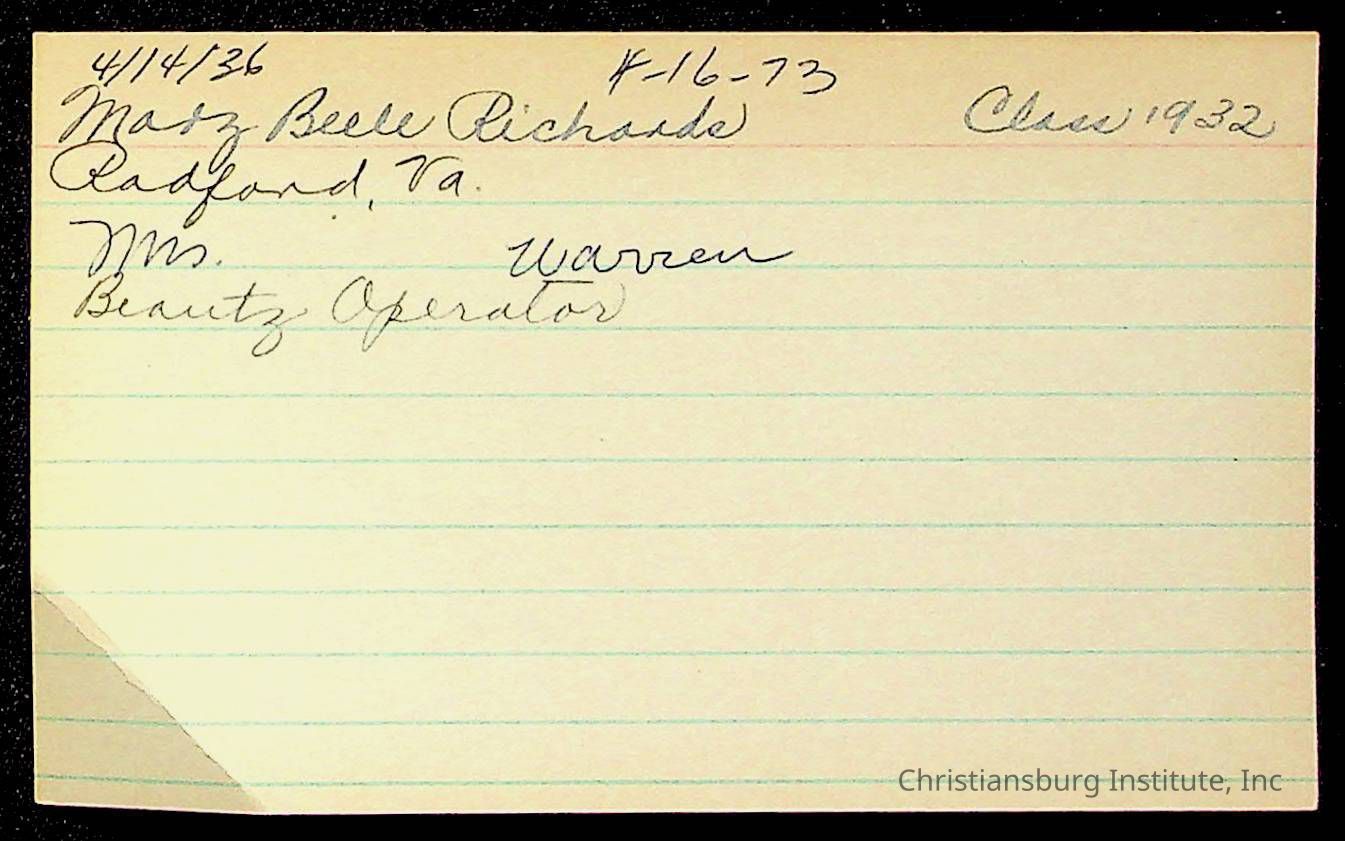 4/14/36 4-16-73
Mary Belle Richards Class 1932
Radford, Va.
Mrs. Warren
Beauty Operator
Christiansburg Institute, Inc